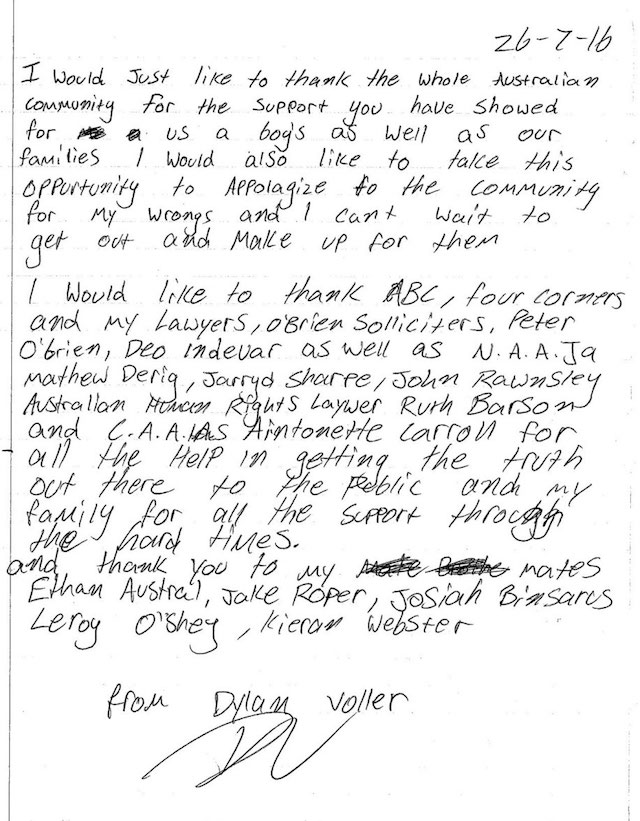 26-7-16
I Would Just like to thank the whole Australian
community for the support you have showed
for a us a boys as well as our
families I would also like to take this
opportunity to Appolagize to the community
for my wrongs and I cant wait to
get out and Make up for them
I would like to thank ABC, four corners
and my Lawyers, O'Brien Solliciters, Peter
O'brien, Deo indevar as well as N.A.A.Ja
Mathew Derig, Jarryd Sharpe, John Rawnsley
Australian Human Rights Laywer Ruth Barson
and C.A.A. Aintonette Carroll for
all the Help in getting the truth
out there to the Public and my
family for all the support through
the hard times.
and thank you to my mates
Ethan Austral, Jake Roper, Josiah Binsarus
Leroy O'Shey, Kieran Webster
from Dylan Voller